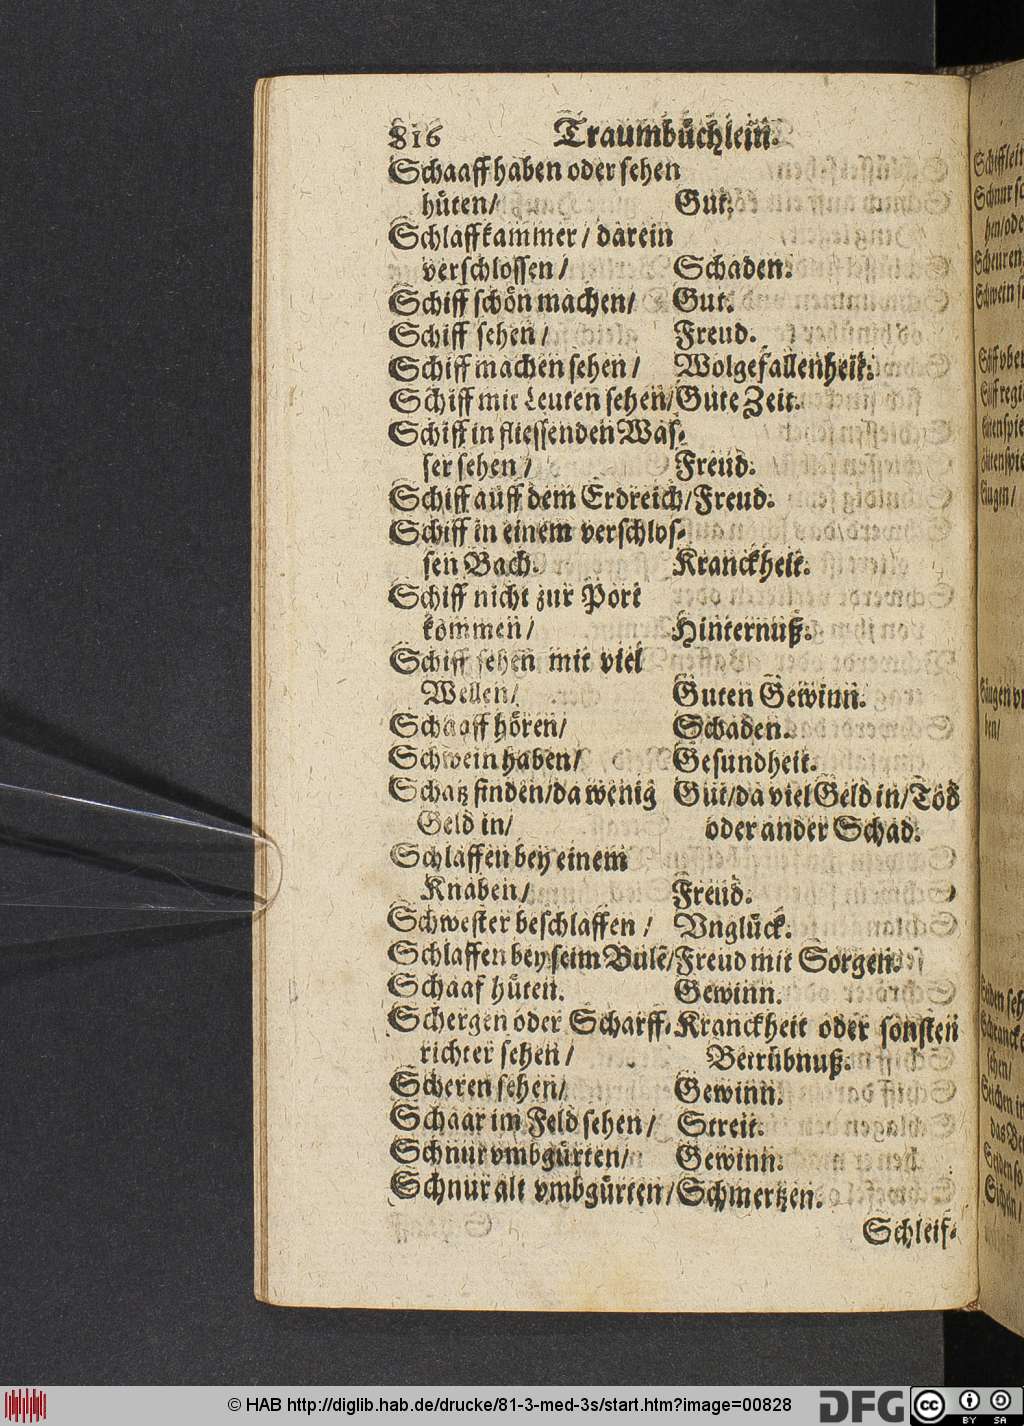 816 Traumbüchlein.
Schaaff haben oder sehen
hüten/ Gut.
Schlaffkammer/ darein
verschlossen/ Schaden.
Schiff schön machen/ Gut.
Schiff sehen/ Freud.
Schiff machen sehen/ Wolgefallenheit.
Schiff mit Leuten sehen/ Gute Zeit.
Schiff in fliessenden Was-
ser sehen/ Freud.
Schiff auff dem Erdreich/ Freud.
Schiff in einem verschlos-
sen Bach. Kranckheit.
Schiff nicht zur Port
kommen/ Hinternuß.
Schiff sehen mit viel
Wellen/ Guten Gewinn.
Schaaff hören/ Schaden.
Schwein haben/ Gesundheit.
Schatz finden/ da wenig Gut/ da viel Geld in/ Tod
Geld in/ oder ander Schad.
Schlaffen bey einem
Knaben/ Freud.
Schwester beschlaffen/ Vnglück.
Schlaffen bey seim Bule/ Freud mit Sorgen.
Schaaf hüten. Gewinn.
Schergen oder Scharff- Kranckheit oder sonsten
richter sehen/ Betrübnuß.
Scheren sehen/ Gewinn.
Schaar im Feld sehen/ Streit.
Schnur vmbgürten/ Gewinn.
Schnur alt vmbgürten/ Schmertzen.
Schleif-
© HAB http://diglib.hab.de/drucke/81-3-med-3s/start.htm?image=00828
DFG
cc BY SA